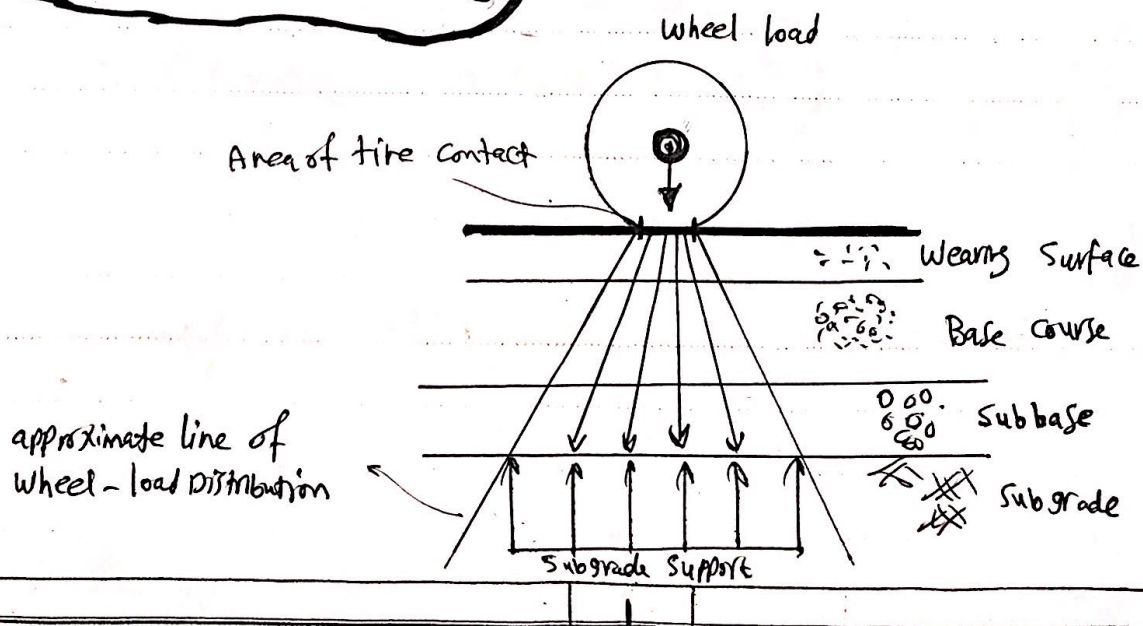 Wheel load
Area of tire contact
Wearing Surface
Base course
Subbase
approximate line of
Wheel-load Distribution
Subgrade
Subgrade Support